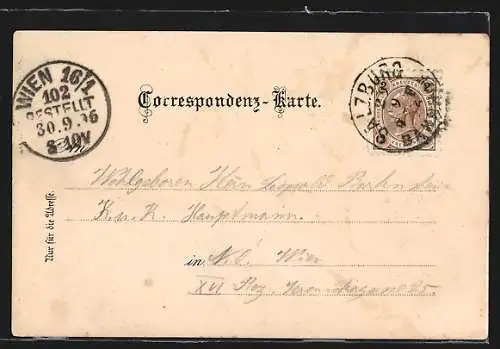 WIEN 16/1
102
BESTELLT
30.9.96
8-10V
Correspondenz-Karte.
SALZBURG
BAHNHOF
Nur für die Adresse.
Wohlgeboren Herrn Leopold
K. u. K. Hauptmann
in N.Ö. Wien
XVI